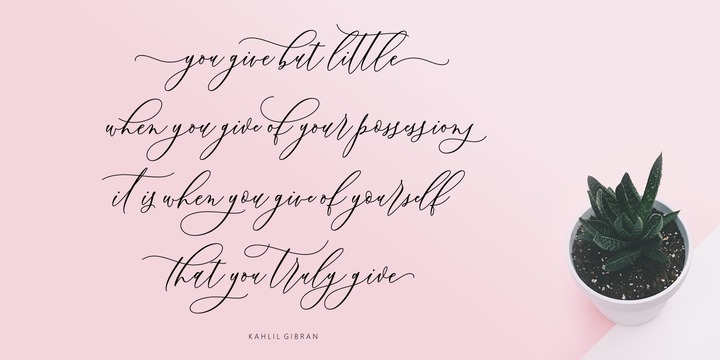 you give but little
when you give of your possessions
it is when you give of yourself
that you truly give
KAHLIL GIBRAN